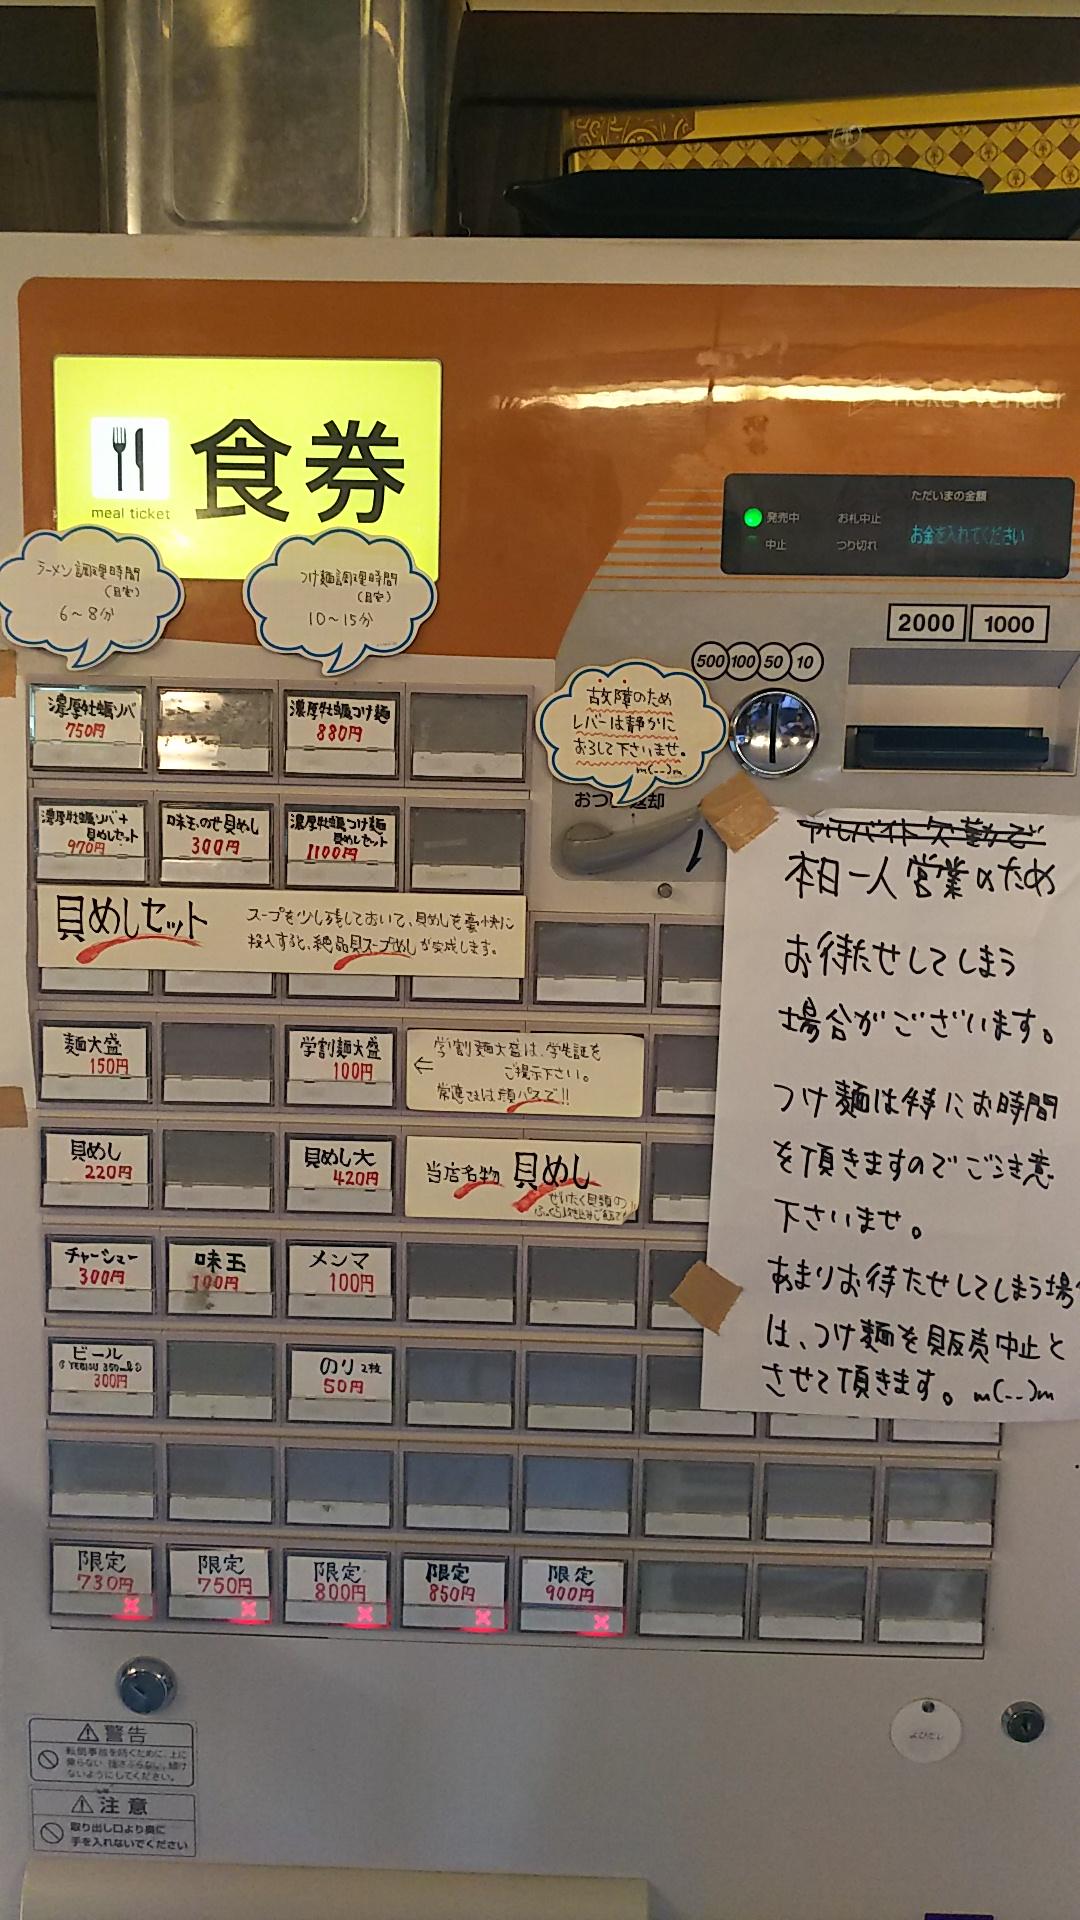 Ticket Vender
食券
meal ticket
ただいまの金額
発売中
お札中止
お金を入れてください
中止
つり切れ
ラーメン調理時間
(目安)
6～8分
つけ麺調理時間
(目安)
10～15分
2000
1000
500
100
50
10
故障のため
レバーは静かに
おろして下さいませ。
m(--)m
濃厚牡蠣ソバ
750円
濃厚牡蠣つけ麺
880円
濃厚牡蠣ソバ+
貝めしセット
970円
味玉のせ貝めし
300円
濃厚牡蠣つけ麺
貝めしセット
1100円
貝めしセット
スープを少し残しておいて、貝めしを豪快に
投入すると、絶品貝スープめしが完成します。
アルバイト欠勤で
本日一人営業のため
お待たせしてしまう
場合がございます。
つけ麺は特にお時間
を頂きますのでご注意
下さいませ。
あまりお待たせしてしまう場
は、つけ麺を販売中止と
させて頂きます。m(--)m
麺大盛
150円
学割麺大盛
100円
← 学割麺大盛は、学生証を
ご提示下さい。
常連さまは顔パスで!!
貝めし
220円
貝めし大
420円
当店名物 貝めし
ぜいたく貝類の
チャーシュー
300円
味玉
100円
メンマ
100円
ビール
300円
のり 2枚
50円
限定
730円
限定
750円
限定
800円
限定
850円
限定
900円
よびだし
警告
転倒事故を防ぐために、上に
乗らない 揺さぶらない、傾け
ないようにしてください。
注意
取り出し口より奥に
手を入れないでください